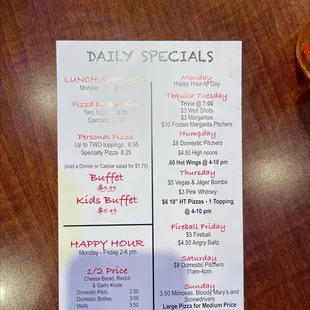 DAILY SPECIALS
LUNCH SPECIALS
Monday
Pizza by the Slice
Two Top
Specialty
Personal Pizza
Up to TWO toppings 6.95
Specialty Pizza 8.25
(Add a Dinner or Caesar salad for $1.75)
Buffet
$9.99
Kids Buffet
$5.49
HAPPY HOUR
Monday - Friday 2-6 pm
1/2 Price
Cheese Bread, Ravioli
& Garlic Knots
Domestic Pints 2.50
Domestic Bottles 3.00
Wells 3.50
Monday
Happy Hour All Day
Tequila Tuesday
Trivia @ 7:00
$3 Well Shots
$3 Margaritas
$10 Frozen Margarita Pitchers
Humpday
$8 Domestic Pitchers
$4.50 High noons
.60 Hot Wings @ 4-10 pm
Thursday
$5 Vegas & Jäger Bombs
$3 Pink Whitney
$6 10" HT Pizzas - 1 Topping
@ 4-10 pm
Fireball Friday
$3 Fireball
$4.50 Angry Ballz
Saturday
$8 Domestic Pitchers
11am-4pm
Sunday
3.50 Mimosas, Bloody Mary's and
Screwdrivers
Large Pizza for Medium Price